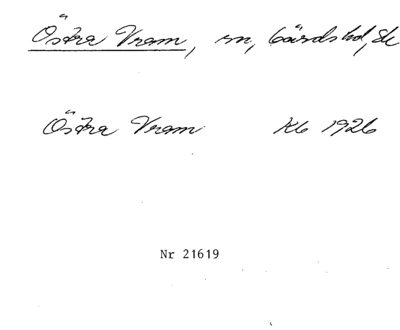 Östra Vram, sn, Gärds hd, Sk
Östra Vram Kb 1926
Nr 21619